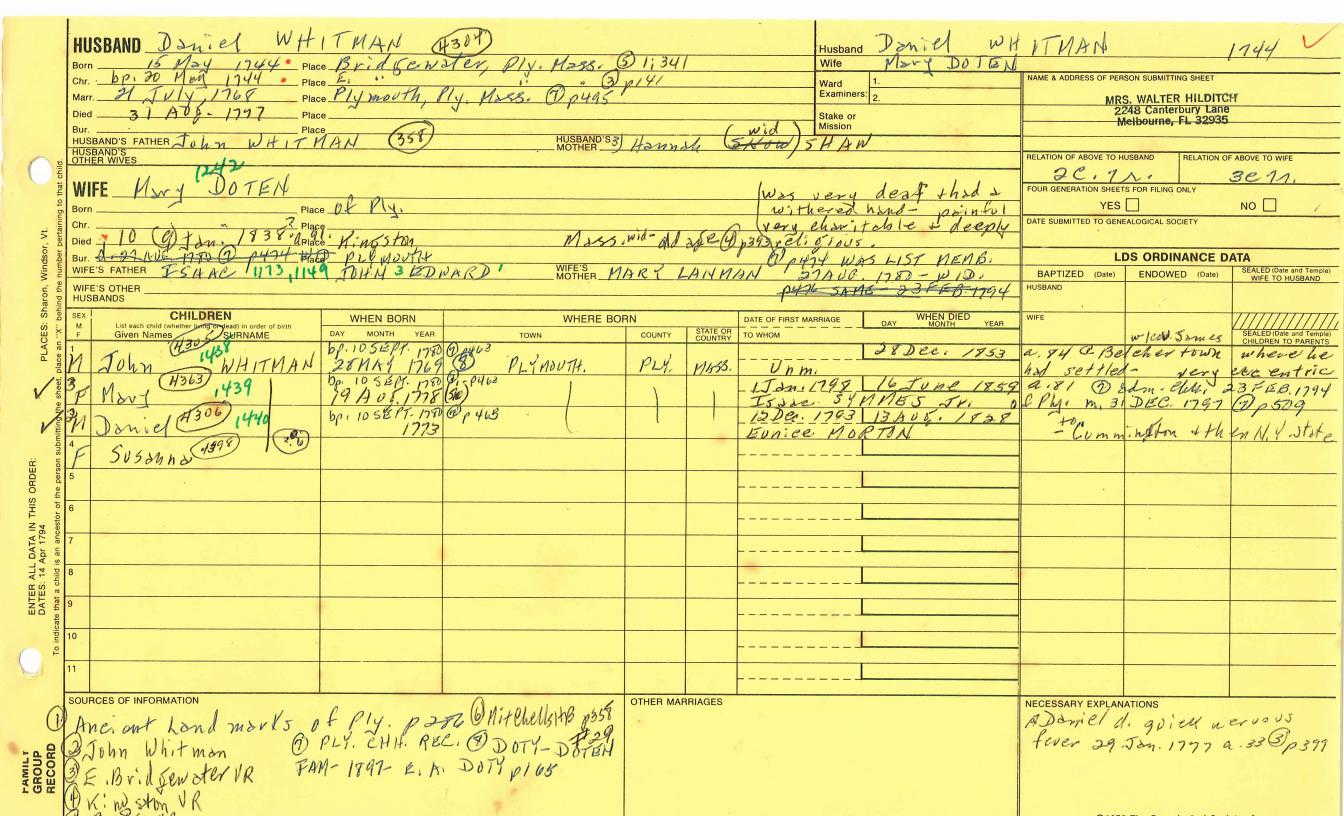 HUSBAND Daniel WHITMAN 4307
Born 15 May 1744 Place Bridgewater, Ply. Mass. 5 1; 341
Chr. bp. 20 May 1744 Place E. " " 3 p141
Marr. 21 July, 1768 Place Plymouth, Ply. Mass. 7 p495
Died 31 AUG. 1797 Place
Bur. Place
HUSBAND'S FATHER John WHITMAN 358
HUSBAND'S MOTHER 3) Hannah (wid SNOW) SHAW
HUSBAND'S OTHER WIVES
Husband Daniel WHITMAN 1744
Wife Mary DOTEN
Ward Examiners: 1.
2.
Stake or Mission
NAME & ADDRESS OF PERSON SUBMITTING SHEET
MRS. WALTER HILDITCH
2248 Canterbury Lane
Melbourne, FL 32935
RELATION OF ABOVE TO HUSBAND RELATION OF ABOVE TO WIFE
2C. 7r. 3C 7r.
FOUR GENERATION SHEETS FOR FILING ONLY
YES NO
DATE SUBMITTED TO GENEALOGICAL SOCIETY
1242
WIFE Mary DOTEN
Born Place of Ply.
Chr. Place
Died 10 (9) Jan. 1838 Place Kingston Mass. wid- old age 4 p393
Bur. Place PLYMOUTH
was very deaf + had a
withered hand- painful
very charitable + deeply
religious.
7 p474 WAS LIST MEMB.
27 AUG. 1780 - WID.
p476 SAME - 23 FEB 1794
WIFE'S FATHER ISAAC 1173, 1149 JOHN 3 EDWARD 1
WIFE'S MOTHER MARY LANMAN
WIFE'S OTHER HUSBANDS
LDS ORDINANCE DATA
BAPTIZED (Date) ENDOWED (Date) SEALED (Date and Temple) WIFE TO HUSBAND
HUSBAND
WIFE
SEALED (Date and Temple) CHILDREN TO PARENTS
SEX M F
CHILDREN
List each child (whether living or dead) in order of birth
Given Names SURNAME
WHEN BORN
DAY MONTH YEAR
WHERE BORN
TOWN COUNTY STATE OR COUNTRY
DATE OF FIRST MARRIAGE
TO WHOM
WHEN DIED
DAY MONTH YEAR
1 M John 4305 1438 WHITMAN
bp. 10 SEPT. 1780 7 p463
28 MAY 1769 8 PLYMOUTH PLY. MASS.
Unm. 28 Dec. 1853
w/ Col. James
a. 84 @ Belchertown where he
had settled- very eccentric
3 F Mary 4363 1439
bp. 10 SEPT. 1780 7 p463
19 AUG. 1778
1 Jan. 1798 16 June 1859
Isaac SYMMES Jr.
a. 81 7 adm. chh. 23 FEB. 1794
of Ply. m. 31 DEC. 1797 7 p509
2 M Daniel 4306 1440
bp. 10 SEPT. 1780 7 p463
1773
12 Dec. 1793 13 AUG. 1828
Eunice MORTON
to Cummington + then N.Y. state
4 F Susanna 4398
5
6
7
8
9
10
11
SOURCES OF INFORMATION
1 Ancient Landmarks of Ply. p286
2 John Whitman
3 E. Bridgewater VR
4 Kingston VR
6 Mitchells HB p358
p329
7 PLY. CHH. REC. 8 DOTY-DOTEN
FAM- 1897- E. A. DOTY p165
OTHER MARRIAGES
NECESSARY EXPLANATIONS
A Daniel d. quick nervous
fever 29 Jan. 1777 a. 33 3 p399
PLACES: Sharon, Windsor, Vt.
ENTER ALL DATA IN THIS ORDER:
DATES: 14 Apr 1794
To indicate that a child is an ancestor of the person submitting the sheet, place an "X" behind the number pertaining to that child.
FAMILY GROUP RECORD